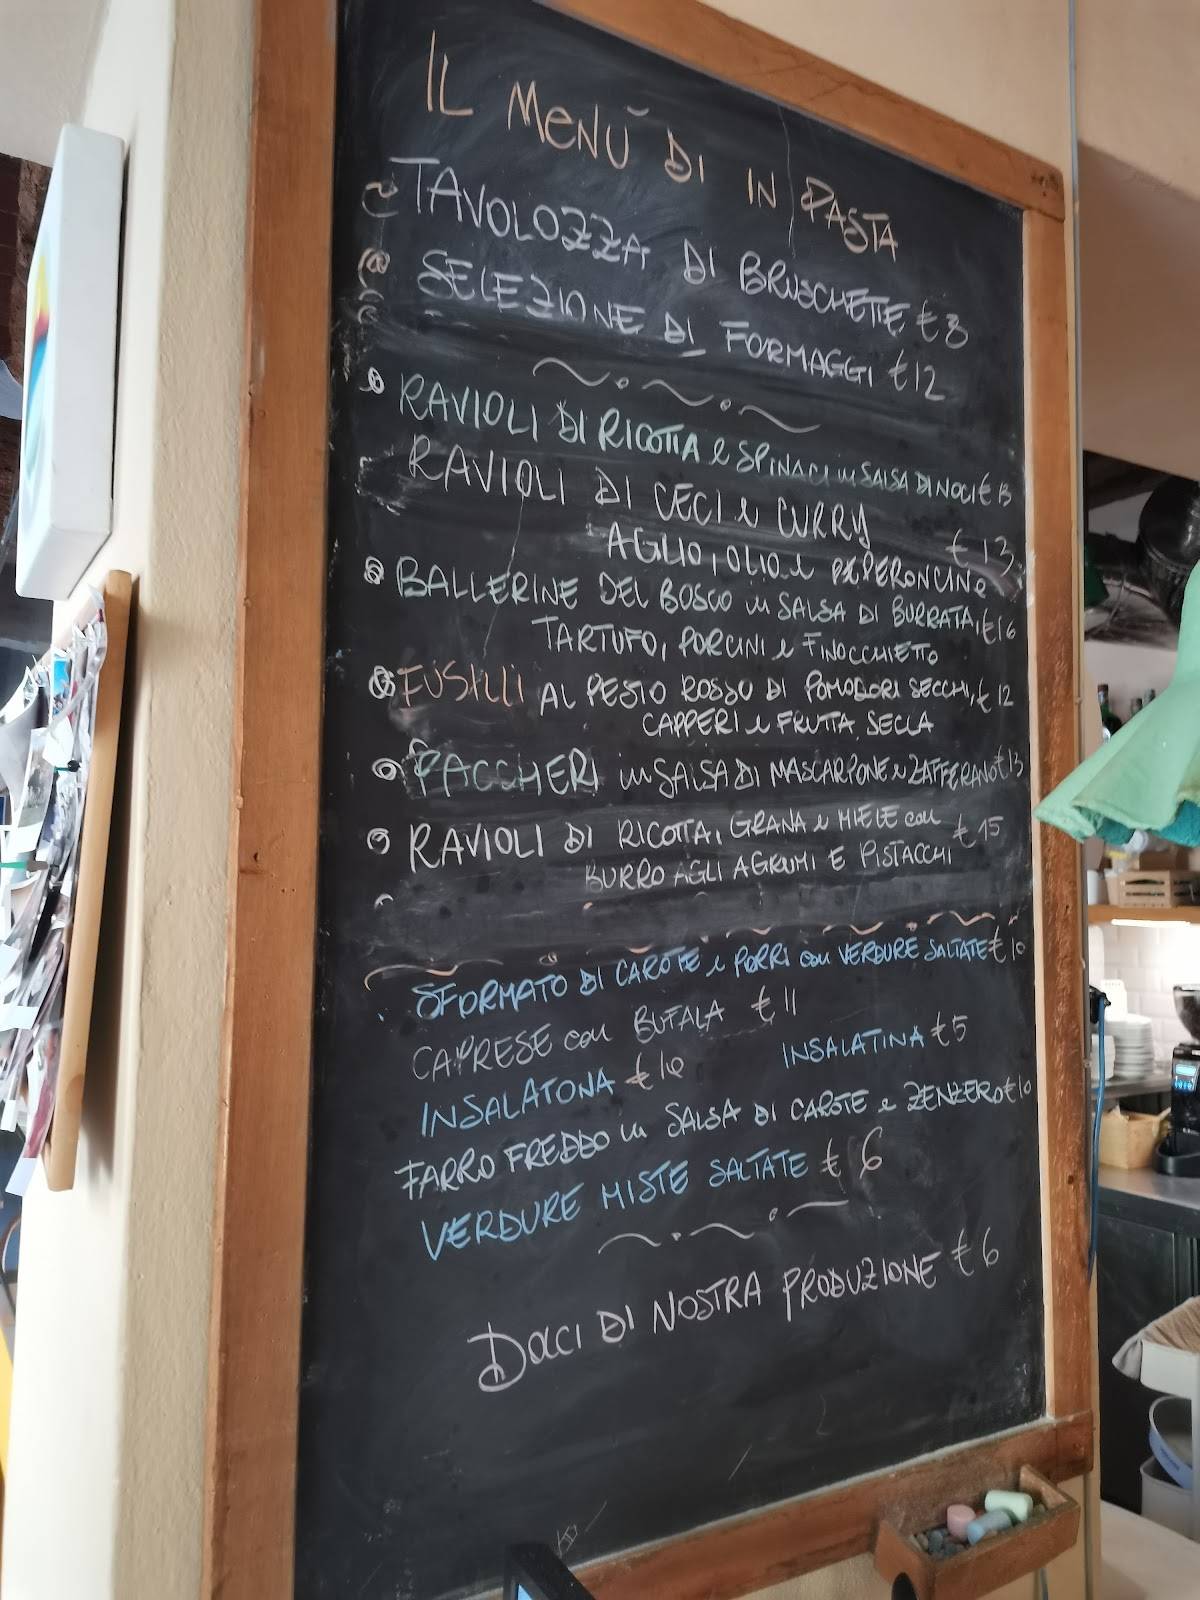 IL MENÙ DI IN PASTA
TAVOLOZZA DI BRUSCHETTE € 8
SELEZIONE DI FORMAGGI € 12
RAVIOLI DI RICOTTA e SPINACI in SALSA DI NOCI € 13
RAVIOLI DI CECI e CURRY
AGLIO, OLIO e PEPERONCINO € 13
BALLERINE DEL BOSCO in SALSA DI BURRATA, € 16
TARTUFO, PORCINI e FINOCCHIETTO
FUSILLI AL PESTO ROSSO DI POMODORI SECCHI, € 12
CAPPERI e FRUTTA SECCA
PACCHERI in SALSA DI MASCARPONE e ZAFFERANO € 13
RAVIOLI DI RICOTTA, GRANA e MIELE con € 15
BURRO AGLI AGRUMI E PISTACCHI
SFORMATO DI CAROTE e PORRI con VERDURE SALTATE € 10
CAPRESE con BUFALA € 11
INSALATONA € 10 INSALATINA € 5
FARRO FREDDO in SALSA DI CAROTE e ZENZERO € 10
VERDURE MISTE SALTATE € 6
DOLCI DI NOSTRA PRODUZIONE € 6